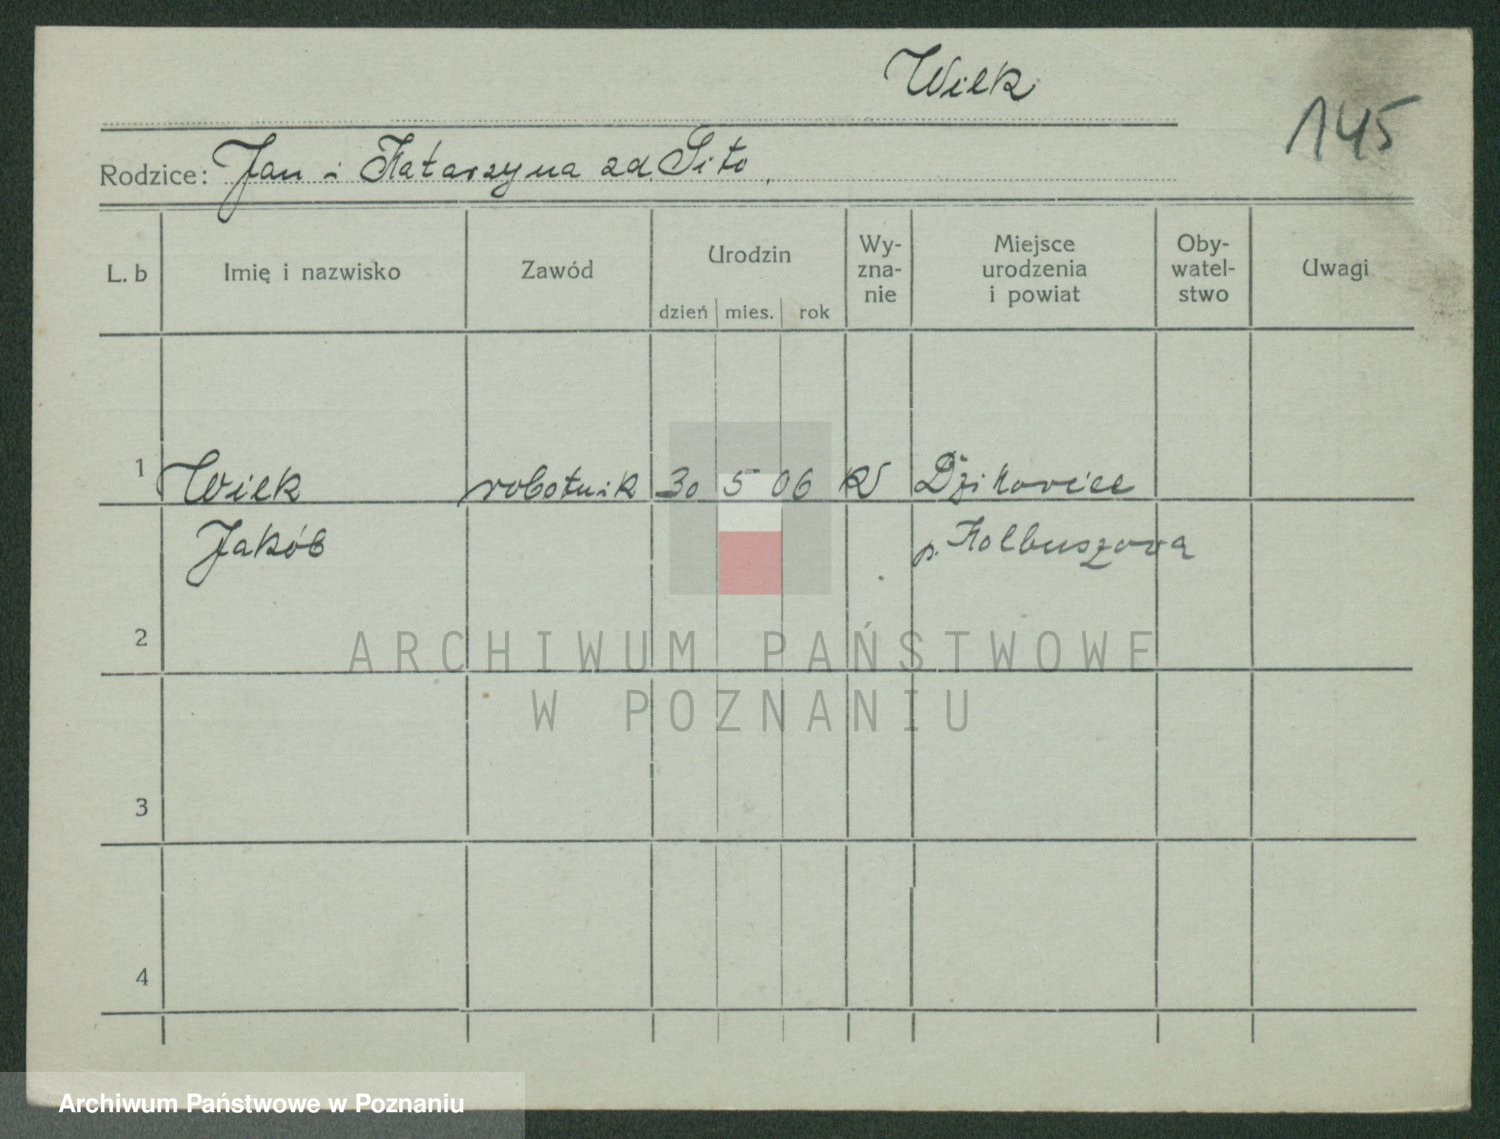 Wilk
145
Rodzice: Jan i Katarzyna zd. Sito,
L. b Imię i nazwisko Zawód Urodzin dzień mies. rok Wy-zna-nie Miejsce urodzenia i powiat Oby-watel-stwo Uwagi
1 Wilk robotnik 30 5 06 RK Dzikowiec
Jakób p. Kolbuszowa
2
3
4
ARCHIWUM PAŃSTWOWE
W POZNANIU
Archiwum Państwowe w Poznaniu